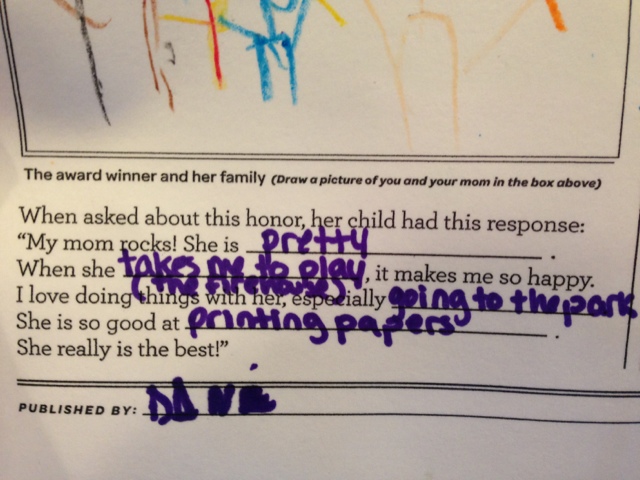 The award winner and her family (Draw a picture of you and your mom in the box above)
When asked about this honor, her child had this response:
“My mom rocks! She is pretty.
When she takes me to play, it makes me so happy.
(the firehouse)
I love doing things with her, especially going to the park
She is so good at printing papers.
She really is the best!”
PUBLISHED BY: DANE